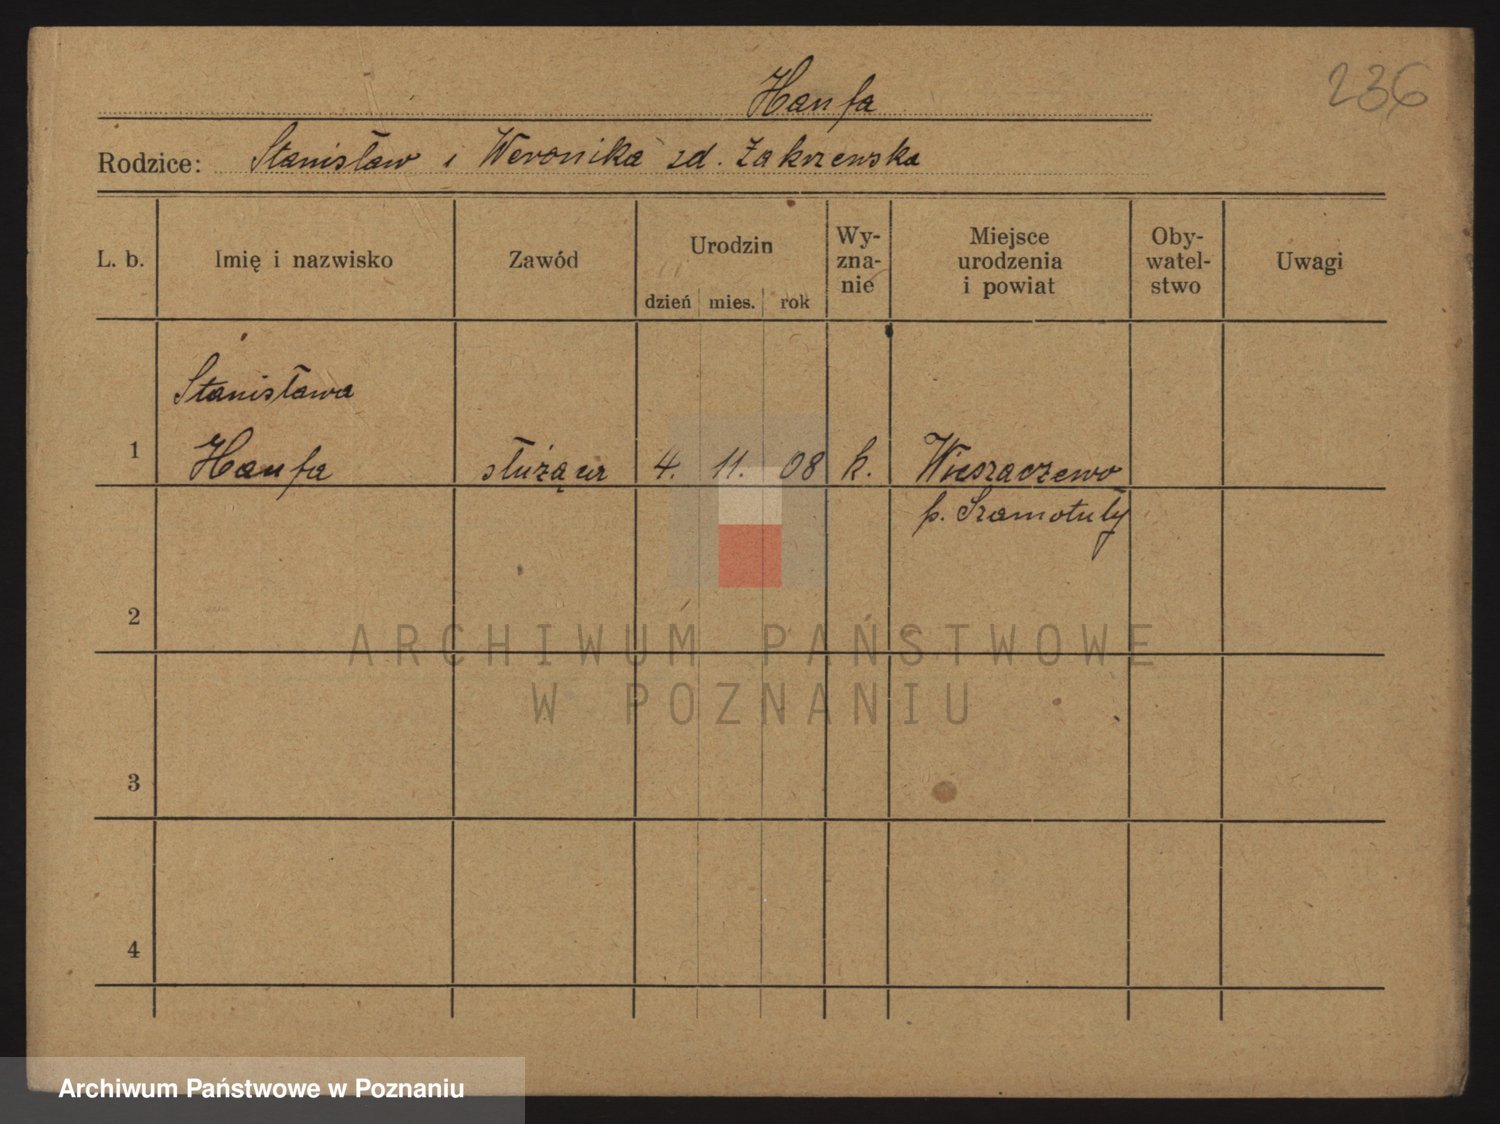 Hanfa
236
Rodzice: Stanisław i Weronika zd. Zakrzewska
L. b.
Imię i nazwisko
Zawód
Urodzin
dzień mies. rok
Wy-
zna-
nie
Miejsce
urodzenia
i powiat
Oby-
watel-
stwo
Uwagi
Stanisława
1 Hanfa służąca 4. 11. 08 k. Wieszaczewo
p. Szamotuły
2
3
4
ARCHIWUM PAŃSTWOWE
W POZNANIU
Archiwum Państwowe w Poznaniu